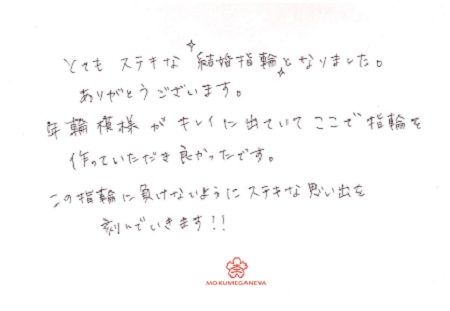 とても ステキな 結婚指輪となりました。
ありがとうございます。
年輪模様が キレイに出ていて ここで 指輪を
作っていただき良かったです。
この指輪に負けないようにステキな思い出を
刻んでいきます!!
MOKUMEGANEYA